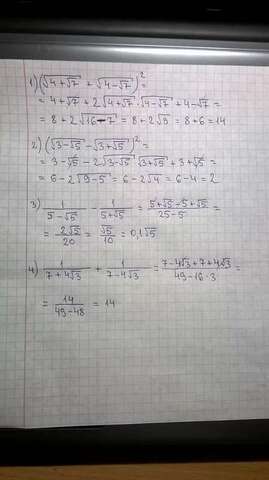 1) (√(4+√7) + √(4-√7))² =
= 4+√7 + 2√(4+√7) · √(4-√7) + 4-√7 =
= 8 + 2√(16-7) = 8 + 2√9 = 8+6 = 14
2) (√(3-√5) - √(3+√5))² =
= 3-√5 - 2√(3-√5) √(3+√5) + 3+√5 =
= 6-2√(9-5) = 6-2√4 = 6-4 = 2
3) 1/(5-√5) - 1/(5+√5) = (5+√5-5+√5)/(25-5) =
= 2√5/20 = √5/10 = 0,1√5
4) 1/(7+4√3) + 1/(7-4√3) = (7-4√3+7+4√3)/(49-16·3) =
= 14/(49-48) = 14